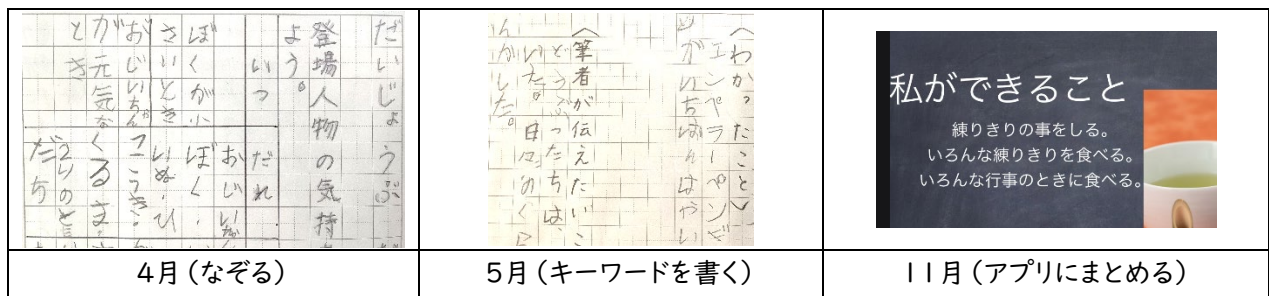 だいじょうぶ
登場人物の気持
よう。
いつ
だれ
ぼくが小
さいとき
おじいちゃん
が元気な
とき
ぼく・
おじい
いぬ・ひ
こうき・
くるま・
2りのと
だち
〈わかったこと〉
エンペラーペンギ
がいちばんはやい
〈筆者が伝えたいこ
どうぶつたちは、
日々の
かした。
私ができること
練りきりの事をしる。
いろんな練りきりを食べる。
いろんな行事のときに食べる。
4月（なぞる）
5月（キーワードを書く）
11月（アプリにまとめる）